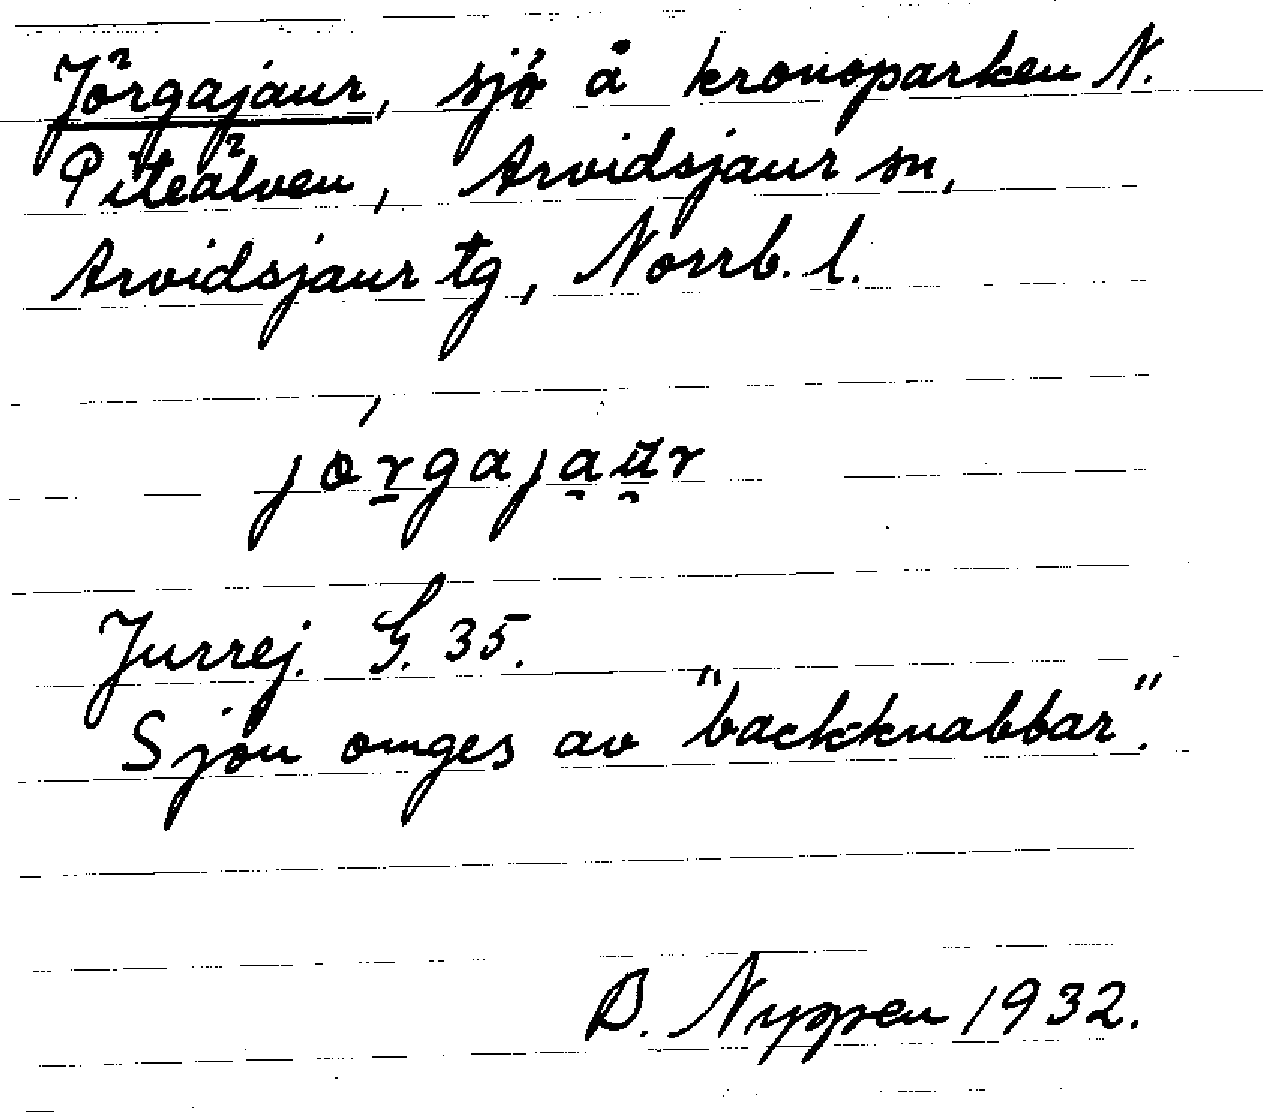 Jörgajaur, sjö å kronoparken N.
Piteälven, Arvidsjaur sn,
Arvidsjaur tg, Norrb. l.
jɵrgajau̯r
Jurrej. G. 35.
Sjön omges av "backknabbar".
B. Nyppen 1932.